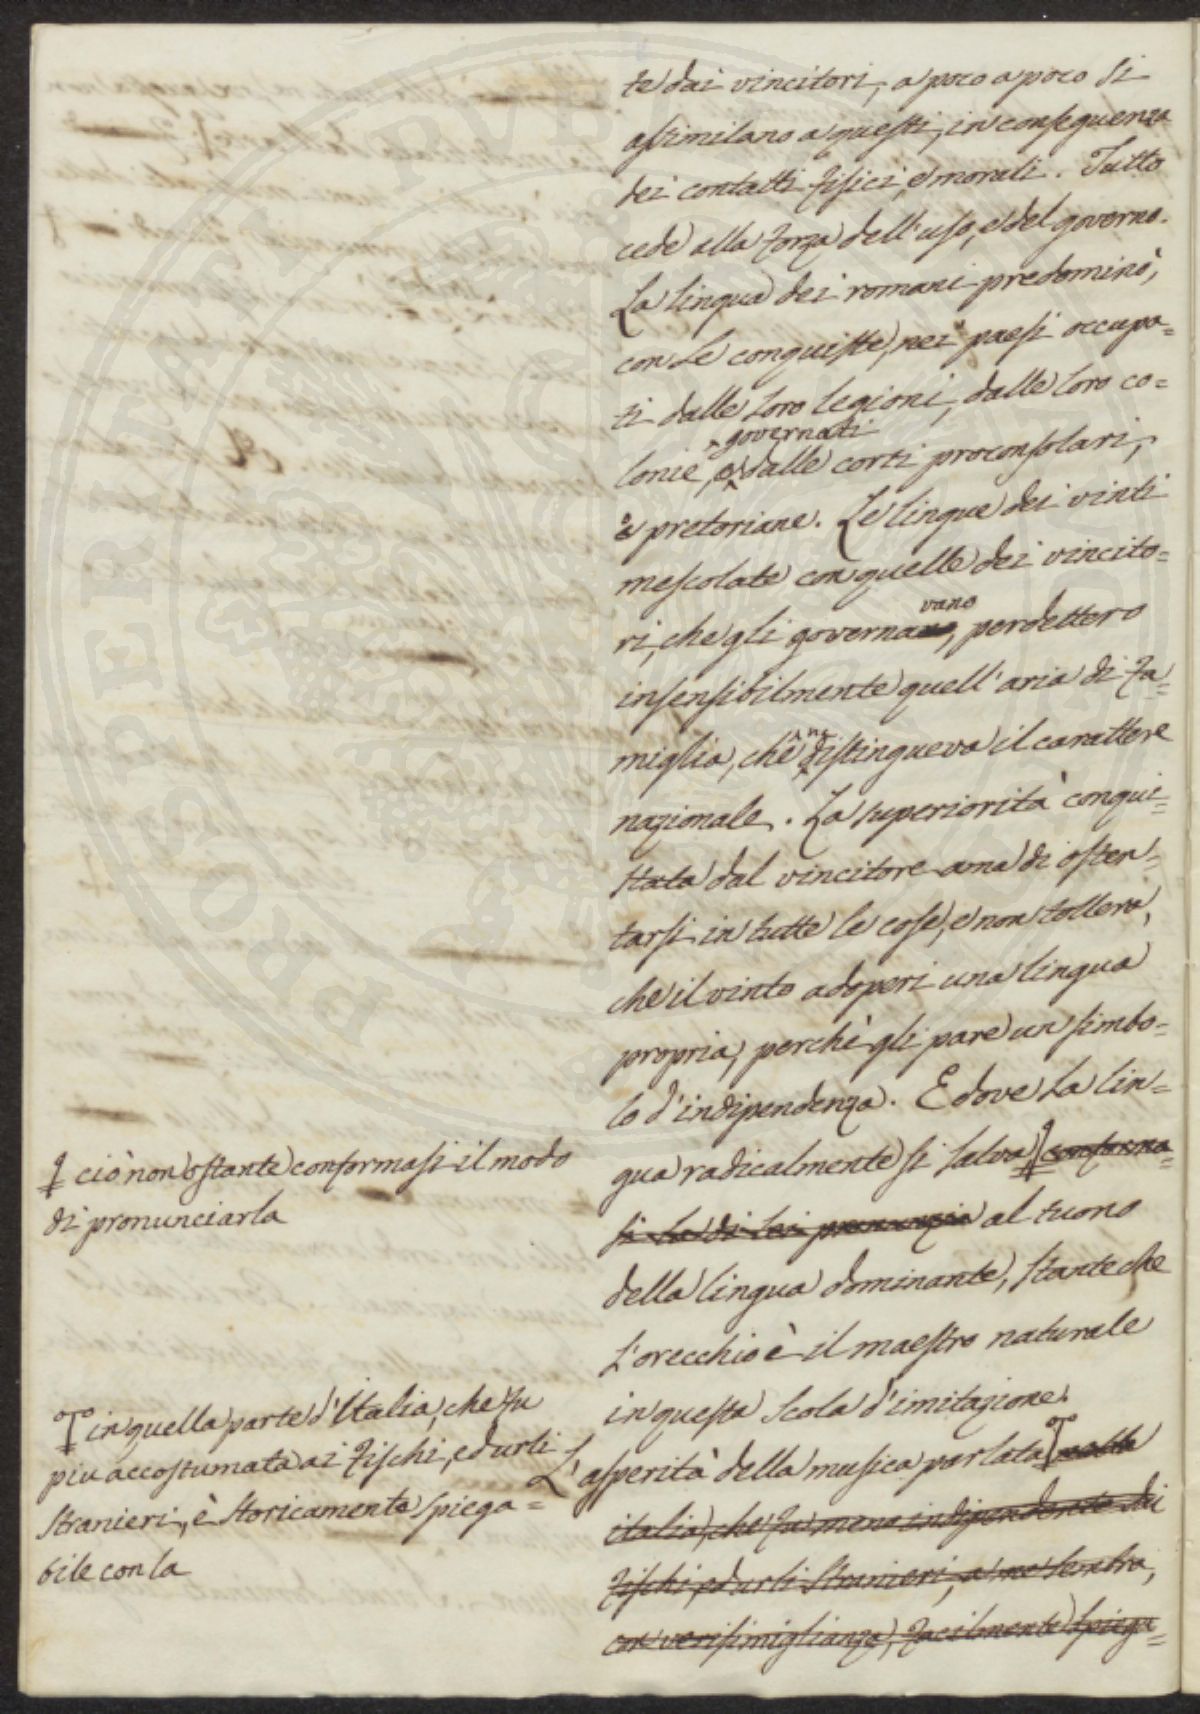 te dai vincitori, a poco a poco si
assimilano a questi, in conseguenza
dei contatti fisici, e morali. Tutto
cede alla forza dell'uso, e del governo.
La lingua dei romani predominò,
con le conquiste, nei paesi occupa=
ti dalle loro legioni, dalle loro co=
governati
lonie, o dalle corti proconsolari,
o pretoriane. Le lingue dei vinti
mescolate con quelle dei vincito=
vano
ri, che gli governano, perdettero
insensibilmente quell'aria di fa=
ne
miglia, che distingueva il carattere
nazionale. La superiorità conqui=
stata dal vincitore ama di osten=
tarsi in tutte le cose, e non tollera,
che il vinto adoperi una lingua
propria, perchè gli pare un simbo=
lo d'indipendenza. E dove la lin=
gua radicalmente si salva conforma=
si la di lei pronunzia al tuono
della lingua dominante, stante che
l'orecchio è il maestro naturale
in questa scola d'imitazione.
L'asperità della musica parlata nella
italia, che fu meno indipendente dai
fischi, ed urli stranieri, a me sembra,
con verisimiglianza, facilmente spiega=
ciò non ostante conformasi il modo
di pronunciarla
in quella parte d'Italia, che fu
piu accostumata ai fischi, ed urli
stranieri, è storicamente spiega=
bile con la
PROSPERITATI PUBL